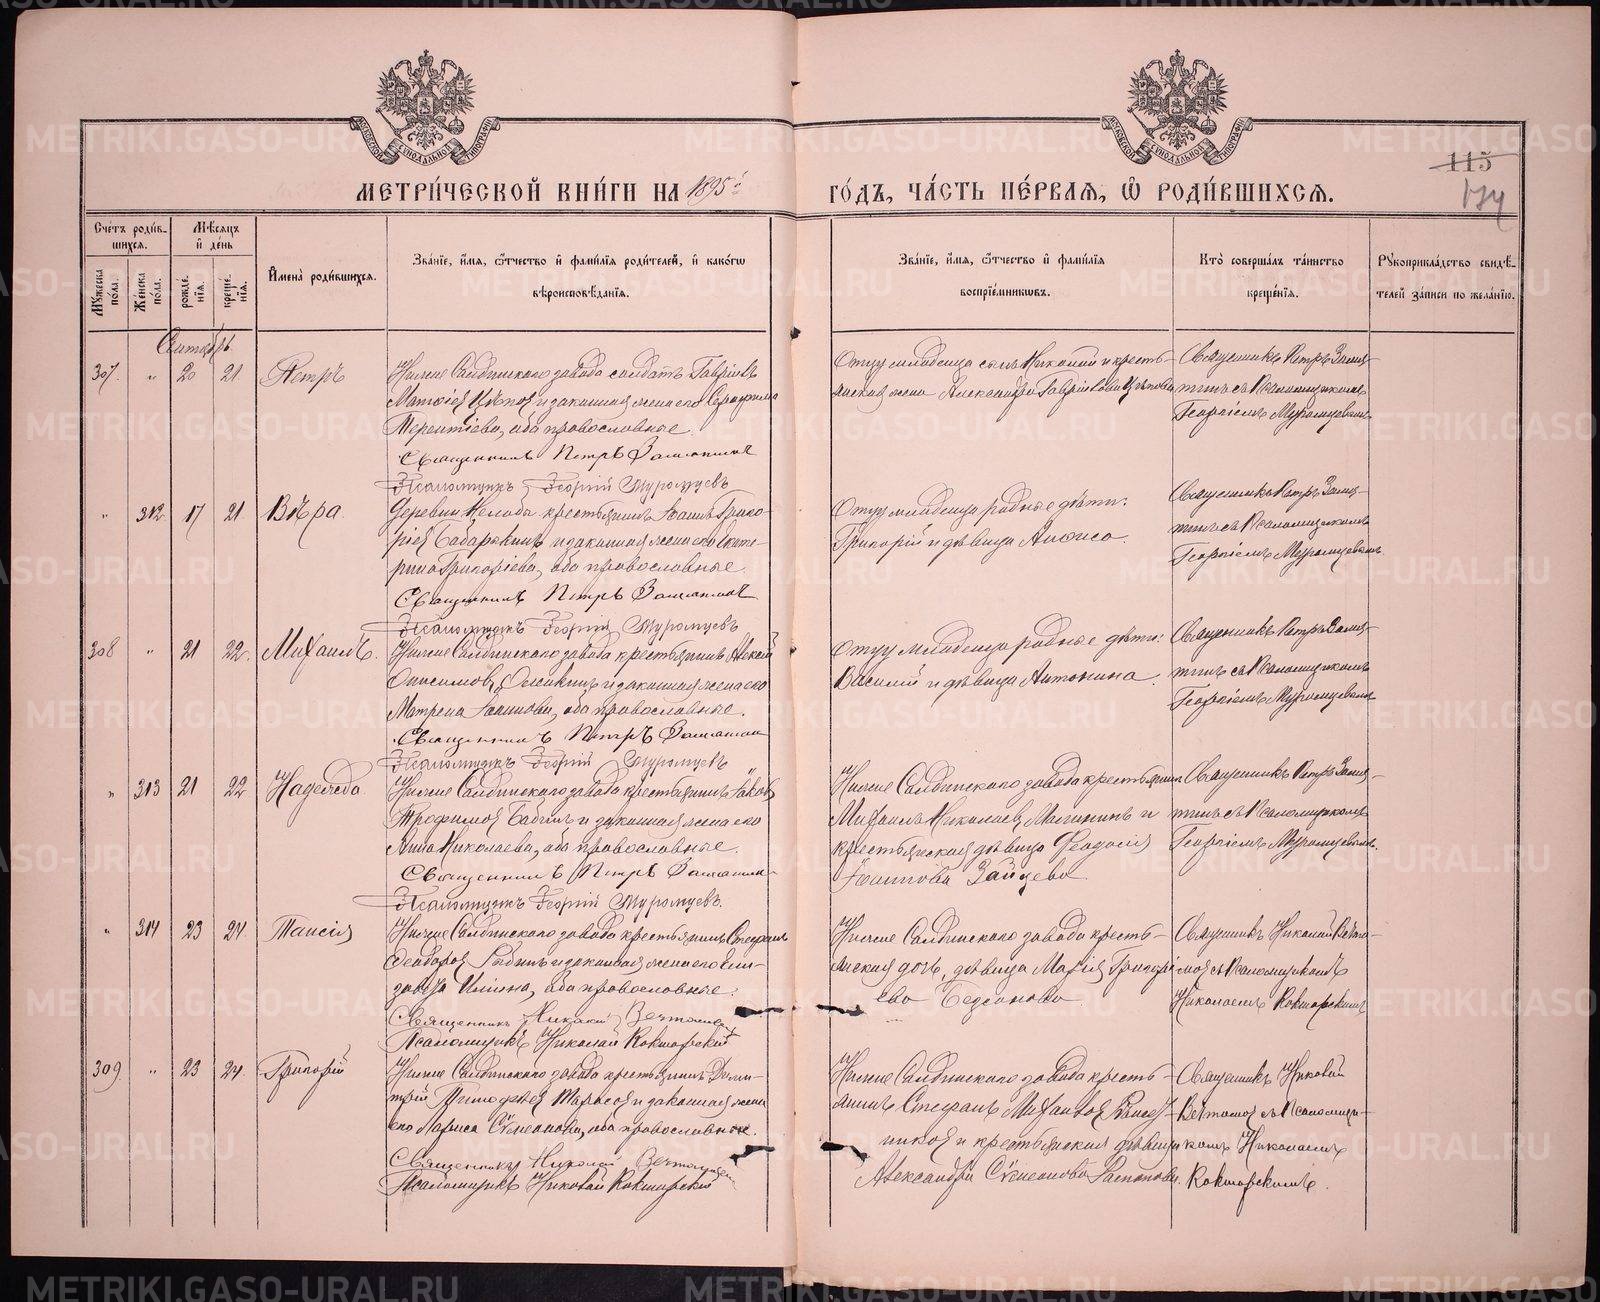 МОСКОВСКОЙ СѴНОДАЛЬНОЙ ТИПОГРАФІИ
МОСКОВСКОЙ СѴНОДАЛЬНОЙ ТИПОГРАФІИ
МЕТРИ́ЧЕСКОЙ КНИ́ГИ НА 1895 й
ГО́ДЪ, ЧА́СТЬ ПЕ́РВАЯ, Ѡ҆ РОДИ́ВШИХСЯ.
115
174
Сче́тъ роди́вшихся.
Мѣ́сяцъ и҆ де́нь
И҆мена̀ роди́вшихся.
Зва́нїе, и҆́мя, ѻ҆́тчество и҆ фами́лїя роди́телей, и҆ како́гѡ
вѣроисповѣ́данїя.
Зва́нїе, и҆́мя, ѻ҆́тчество и҆ фами́лїя
воспрїе́мникѡвъ.
Кто̀ соверша́лъ та́инство
креще́нїя.
Рꙋкоприкла́дство свидѣ́-
телей за́писи по жела́нїю.
Мꙋ́жеска по́ла.
Же́нска по́ла.
рожде́нїя.
креще́нїя.
Сентябрь
307. " 20 21. Петръ
Нижне Салдинскаго завода солдатъ Гавріилъ
и законная жена его Серафима
Терентіева, оба православные.
Священникъ Петръ Замятинъ
Псаломщикъ Георгій Муромцевъ
Отцу младенца сынъ Николай и кресть-
янская жена Александра Гавріилова
Священникъ Петръ Замя-
тинъ съ Псаломщикомъ
Георгіемъ Муромцевымъ
" 312 17 21 Вѣра
Деревни крестьянинъ Іоаннъ Григо-
рьевъ и законная жена его Екате-
рина Григоріева, оба православные
Священникъ Петръ Замятинъ
Псаломщикъ Георгій Муромцевъ
Отцу младенца родные дѣти:
Григорій и дѣвица Анфиса.
Священникъ Петръ Замя-
тинъ съ Псаломщикомъ
Георгіемъ Муромцевымъ
308 " 21 22. Михаилъ.
Нижне Салдинскаго завода крестьянинъ Алексѣй
Онисимовъ и законная жена его
Матрена Іоаннова, оба православные.
Священникъ Петръ Замятинъ
Псаломщикъ Георгій Муромцевъ
Отцу младенца родные дѣти:
Василій и дѣвица Антонина.
Священникъ Петръ Замя-
тинъ съ Псаломщикомъ
Георгіемъ Муромцевымъ
" 313 21 22 Надежда
Нижне Салдинскаго завода крестьянинъ Іаковъ
Трофимовъ Бабинъ и законная жена его
Анна Николаева, оба православные.
Священникъ Петръ Замятинъ
Псаломщикъ Георгій Муромцевъ.
Нижне Салдинскаго завода крестьянинъ
Михаилъ Николаевъ и
крестьянская дѣвица Феодосія
Іоаннова Зайцева.
Священникъ Петръ Замя-
тинъ съ Псаломщикомъ
Георгіемъ Муромцевымъ.
" 314 23 24. Таисія
Нижне Салдинскаго завода крестьянинъ Стефанъ
Феодоровъ и законная жена его Ели-
завета Ильина, оба православные.
Священникъ Николай
Псаломщикъ Николай Кокшарскій
Нижне Салдинскаго завода кресть-
янская дочь, дѣвица Марія Григорі-
ева
Священникъ Николай
съ Псаломщикомъ
Николаемъ Кокшарскимъ
309. " 23 24. Григорій
Нижне Салдинскаго завода крестьянинъ Дими-
трій Тимофеевъ Тарасовъ и законная жена
его Лариса Симеонова, оба православные.
Священникъ Николай
Псаломщикъ Николай Кокшарскій
Нижне Салдинскаго завода кресть-
янинъ Стефанъ Михаиловъ
и крестьянская дѣвица
Александра Симеонова
Священникъ Николай
съ Псаломщи-
комъ Николаемъ
Кокшарскимъ.
METRIKI.GASO-URAL.RU